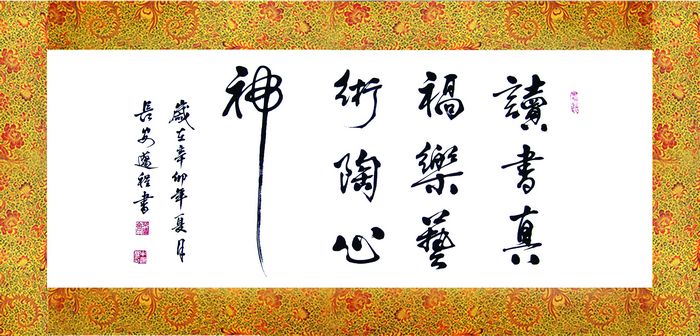 讀書真
福樂藝
術陶心
神
歲在辛卯年夏月
長安蓬程書